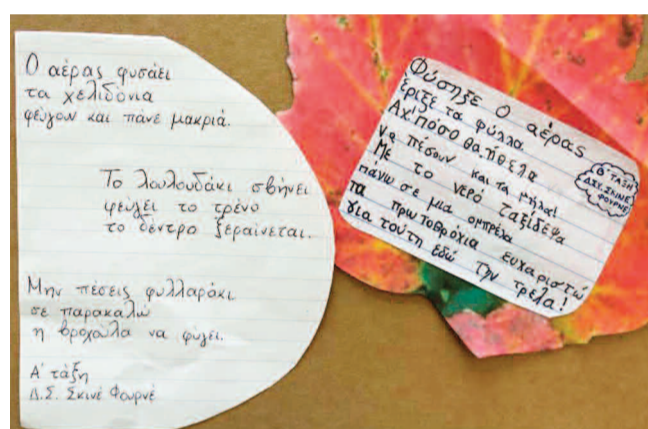 Ο αέρας φυσάει
τα χελιδόνια
φεύγουν και πάνε μακριά.
Το λουλουδάκι σβήνει
φεύγει το τρένο
το δέντρο ξεραίνεται.
Μην πέσεις φυλλαράκι
σε παρακαλώ
η βροχούλα να φύγει.
Α' τάξη
Δ.Σ. Σκινέ Φουρνέ
Φύσηξε ο αέρας
έριξε τα φύλλα
Αχ! Πόσο θα ήθελα
να πέσουν και τα μήλα!
Με το νερό ταξίδεψα
πάνω σε μια ομπρέλα
τα πρωτοβρόχια ευχαριστώ
για τούτη εδώ την τρέλα!
Δ' ΤΑΞΗ
Δ.Σ. ΣΚΙΝΕ
ΦΟΥΡΝΕ